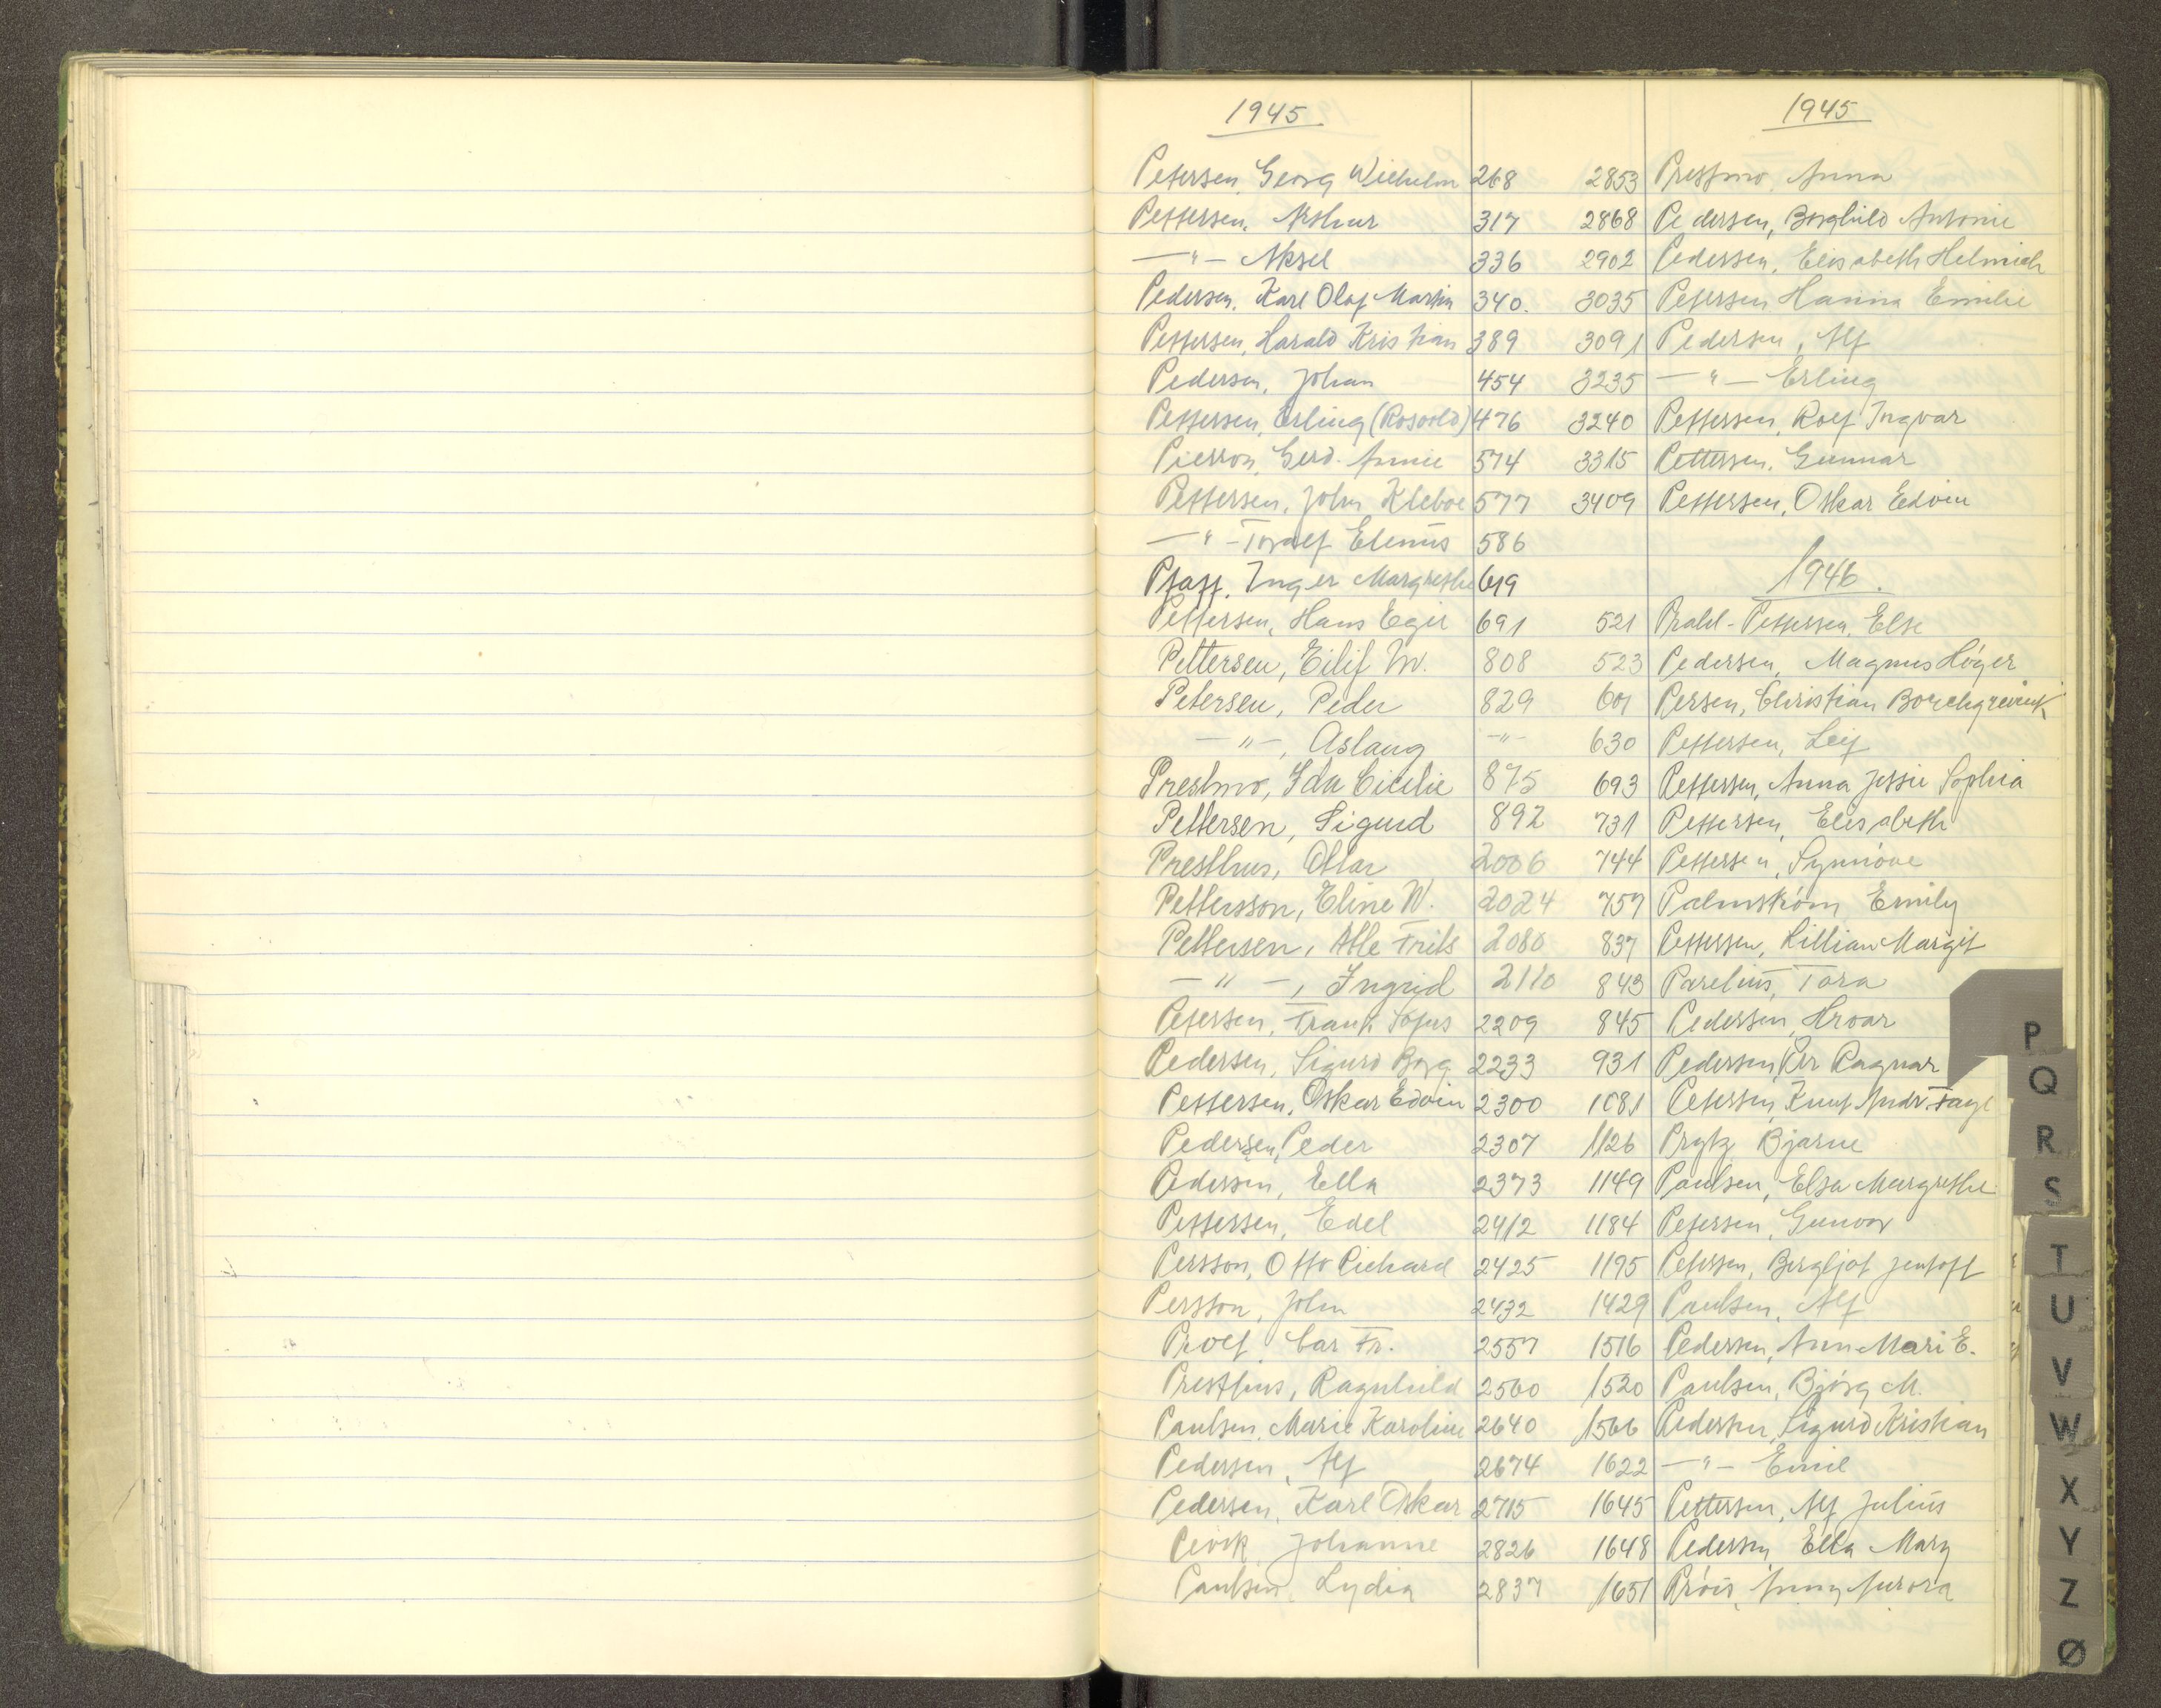 1945
Petersen, Georg Wilhelm 268
Pettersen, Arthur 317
—"— Aksel 336
Pedersen, Karl Olaf Martin 340.
Pettersen, Harald Kristian 389
Pedersen, Johan 454
Pettersen, Erling (Rosvold) 476
Pierron, Gerd. Annie 574
Pettersen, John Kleboe 577
—"— Toralf Elenius 586
Pfaff, Inger Margrethe 619
Pettersen, Hans Egil 691
Pettersen, Eilif M. 808
Petersen, Peder 829
—"—, Aslaug —"—
Prestmo, Ida Cicilie 875
Pettersen, Sigurd 892
Presthus, Ottar 2006
Pettersson, Eline W. 2024
Pettersen, Atle Frits 2080
—"—, Ingrid 2110
Petersen, Frank Sofus 2209
Pedersen, Sigurd Borg 2233
Pettersen, Oskar Edvin 2300
Pedersen, Peder 2307
Pedersen, Ella 2373
Pettersen, Edel 2412
Persson, Otto Richard 2425
Persson, John 2432
Fr. 2557
Presthus, Ragnhild 2560
Paulsen, Marie Karoline 2640
Pedersen, Alf 2674
Pedersen, Karl Oskar 2715
Johanne 2826
Paulsen, Lydia 2837
1945
2853 Prestmo, Anna
2868 Pedersen, Borghild Antonie
2902 Pedersen, Elisabeth Helmich
3035 Petersen Hanna Emilie
3091 Pedersen, Alf
3235 —"— Erling
3240 Pettersen, Rolf Ingvar
3315 Pettersen, Gunnar
3409 Pettersen, Oskar Edvin
1946.
521 Prahl-Pettersen, Else
523 Pedersen, Magnus Höyer
601 Persen, Christian Borchgrevink
630 Pettersen, Leif
693 Pettersen, Anna Jessie Sophia
731 Pettersen, Elisabeth
744 Pettersen, Synnöve
757 Palmström Emily
837 Pettersen, Lillian Margit
843 Parelius, Tora
845 Pedersen, Hroar
931 Pedersen, Per Ragnar
1081 Petersen, Knut Andr.
1126 Prytz Bjarne
1149 Paulsen, Elsa Margrethe
1184 Petersen, Gunvor
1195 Petersen, Bergljot Jentoft
1429 Paulsen, Alf
1516 Pedersen, Ann Mari E.
1520 Paulsen, Bjørg M.
1566 Pedersen, Sigurd Kristian
1622 —"— Emil
1645 Pettersen, Alf Julius
1648 Pedersen, Ella Mary
1651 Pröis, Jenny Aurora
P
Q
R
S
T
U
V
W
X
Y
Z
Ø